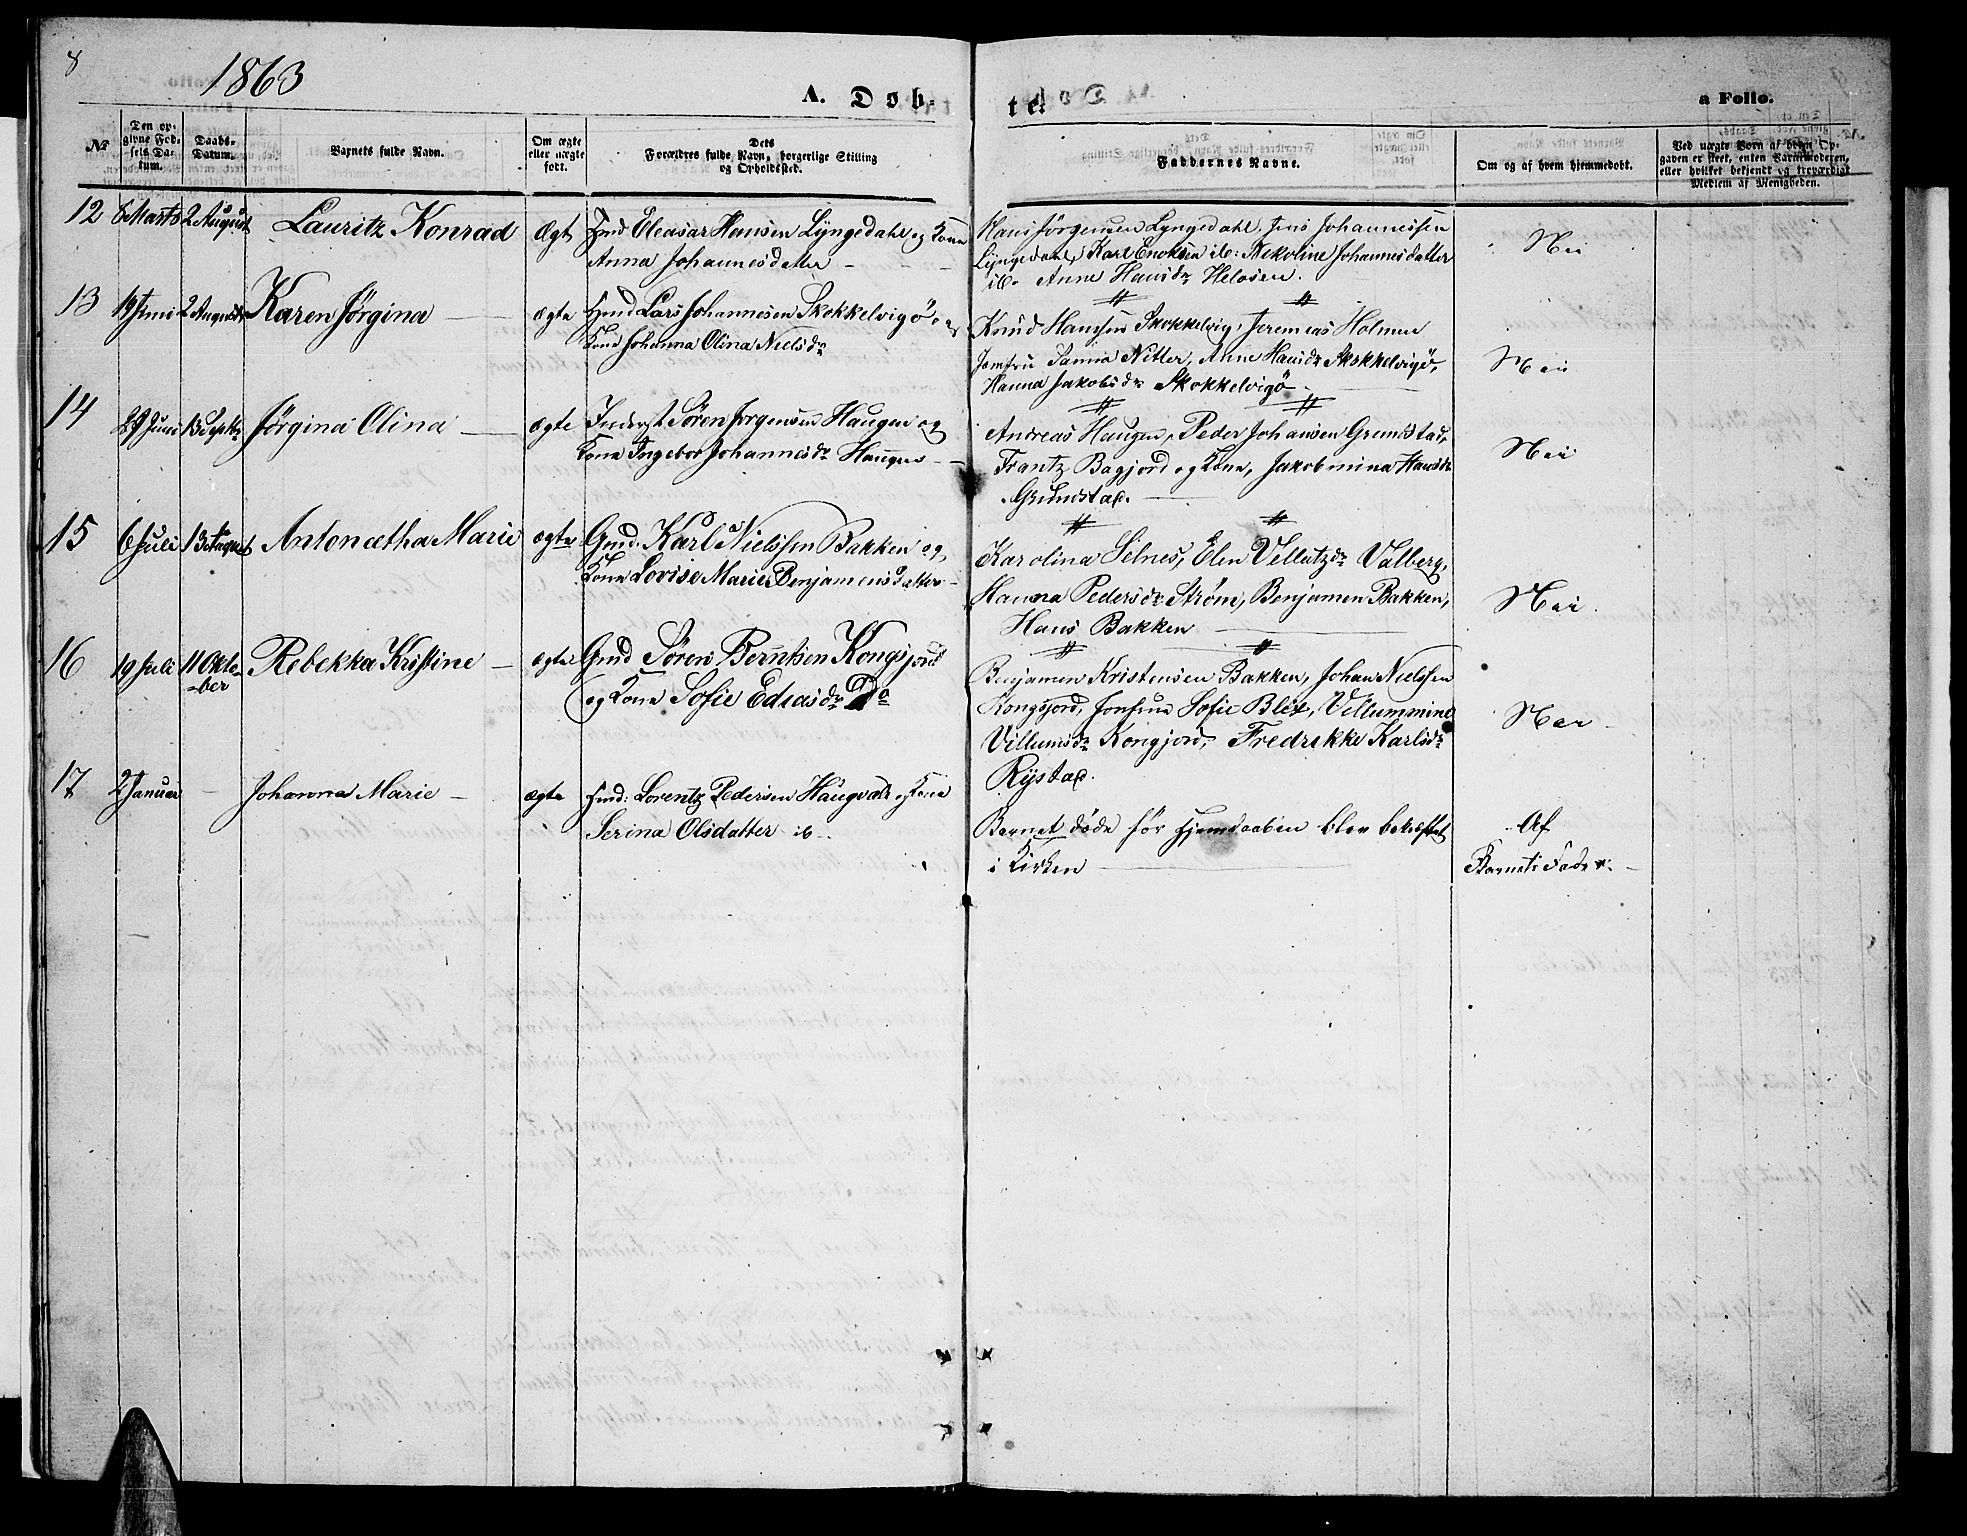 8
1863
A. Døb-
te.
a Folio.
№
Den op-
givne Fød-
sels Da-
tum.
Daabs-
Datum.
Barnets fulde Navn.
Om ægte
eller uægte
født.
Dets
Forældres fulde Navn, borgerlige Stilling
og Opholdssted.
Faddernes Navne.
Om og af hvem hjemmedøbt.
Ved uægte Børn af hvem Op-
gaven er skeet, enten Barnemoderen,
eller hvilket bekjendt og troværdigt
Medlem af Menigheden.
12
6 Marts
2 August
Lauritz Konrad
Ægt
Gmd Eleasar Hansen Lyngedahl og Kone
Anna Johannesdatter
Hans Jørgensen Lyngedahl, Jens Johannessen
Lyngedahl, Karl Enoksen ib: Nekoline Johannesdatter
ib. Anne Hansdr Helosen.
Nei
13
19 Juni
2 August
Karen Jørgina
ægte
Gmd Lars Johannesen Skokkelvigø og
Kone Johanna Olina Nielsdr
Knud Hansen Skokkelvig, Jeremias Holmen
Jomfru Nitter, Anne Hansdr Skokkelvigø,
Hanna Jakobsdr Skokkelvigø
Nei
14
29 Juni
13 Septbr
Jørgina Olina
ægte
Inderst Søren Jørgensen Haugen og
Kone Ingebor Johannesdr Haugen
Andreas Haugen, Peder Johansen Grundstad,
Frantz Bøgjord og Kone, Jakobmina Hansdr
Grundstad.
Nei
15
6 Juli
13 August
Antonætha Marie
ægte
Gmd. Karl Nielssen Bakken og
Kone Lovise Marie Benjamensdatter
Karolina Selnes, Elen Vellutzdr Valberg,
Hanna Pedersdr Strøm, Benjamen Bakken,
Hans Bakken
Nei.
16
19 Juli
11 Okto-
-ber
Rebekka Kristine
ægte
Gmd Søren Berntsen Kongsjord
og Kone Sofie Ediasdr Do
Benjamen Kristensen Bakken, Johan Nielssen
Kongsjord, Jomfrue Sofie Blix, Villummine
Villumsdr Kongjord, Fredrikke Karlsdr
Rystad.
Nei
17
2 Januar
Johanna Marie
ægte
Gmd: Lorentz Pedersen Haugvale og Kone
Serina Olsdatter ib
Barnet døde før Hjemdaaben blev bekræftet
i Kirken
Af
Barnets Fader.